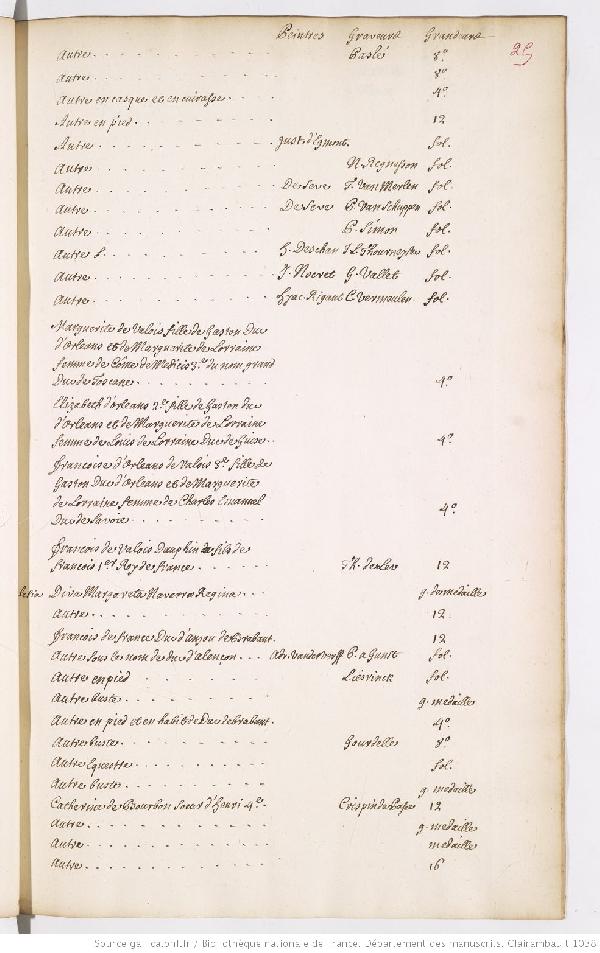 Peintres Graveurs Grandeurs
25
Autre Baslé 8.º
Autre 8º
Autre en casque et en cuirasse 4º
Autre en pied 12
Autre Just. d'Egmont. fol.
Autre N. Regnesson fol.
Autre De Seve F. Van Merlen fol.
Autre De Seve P. Van Schuppen fol.
Autre P. Simon fol.
Autre f. H. Deschan fol.
Autre J. Nocret G. Vallet fol.
Autre Hyac. Rigaut C. Vermeulen fol.
Marguerite de Valois fille de Gaston Duc
d'Orleans et de Marguerite de Lorraine
femme de Côme de Medicis 3.e du nom grand
Duc de Toscane 4º
Elizabeth d'orleans 2.e fille de Gaston duc
d'Orleans et de Marguerite de Lorraine
femme de Louis de Lorraine Duc de Guise 4º
Francoise d'Orleans de Valois 3.e fille de
Gaston Duc d'Orleans et de Marguerite
de Lorraine femme de Charles Emanuel
Duc de Savoie 4º
François de Valois Dauphin fils de
François 1.er Roy de France Th. de Leu 12
Diva Margareta Navarra Regina g. de medaille
Autre 12
François de France Duc d'anjou de Brabant. 12
Autre sous le nom de duc d'alençon Adr. Vanderwerff P. a Gunst fol.
Autre en pied Liesrinck fol.
Autre buste g. medaille
Autre en pied et en habit de Duc de brabant. 4º
Autre buste Gourdelle 8º
Autre Equestre fol.
Autre buste g. medaille
Catherine de Bourbon Soeur d'henri 4.e Crispin de Passe 12
Autre g. medaille
Autre medaille
Autre 16
Source gallica.bnf.fr / Bibliothèque nationale de France. Département des manuscrits. Clairambault 1038